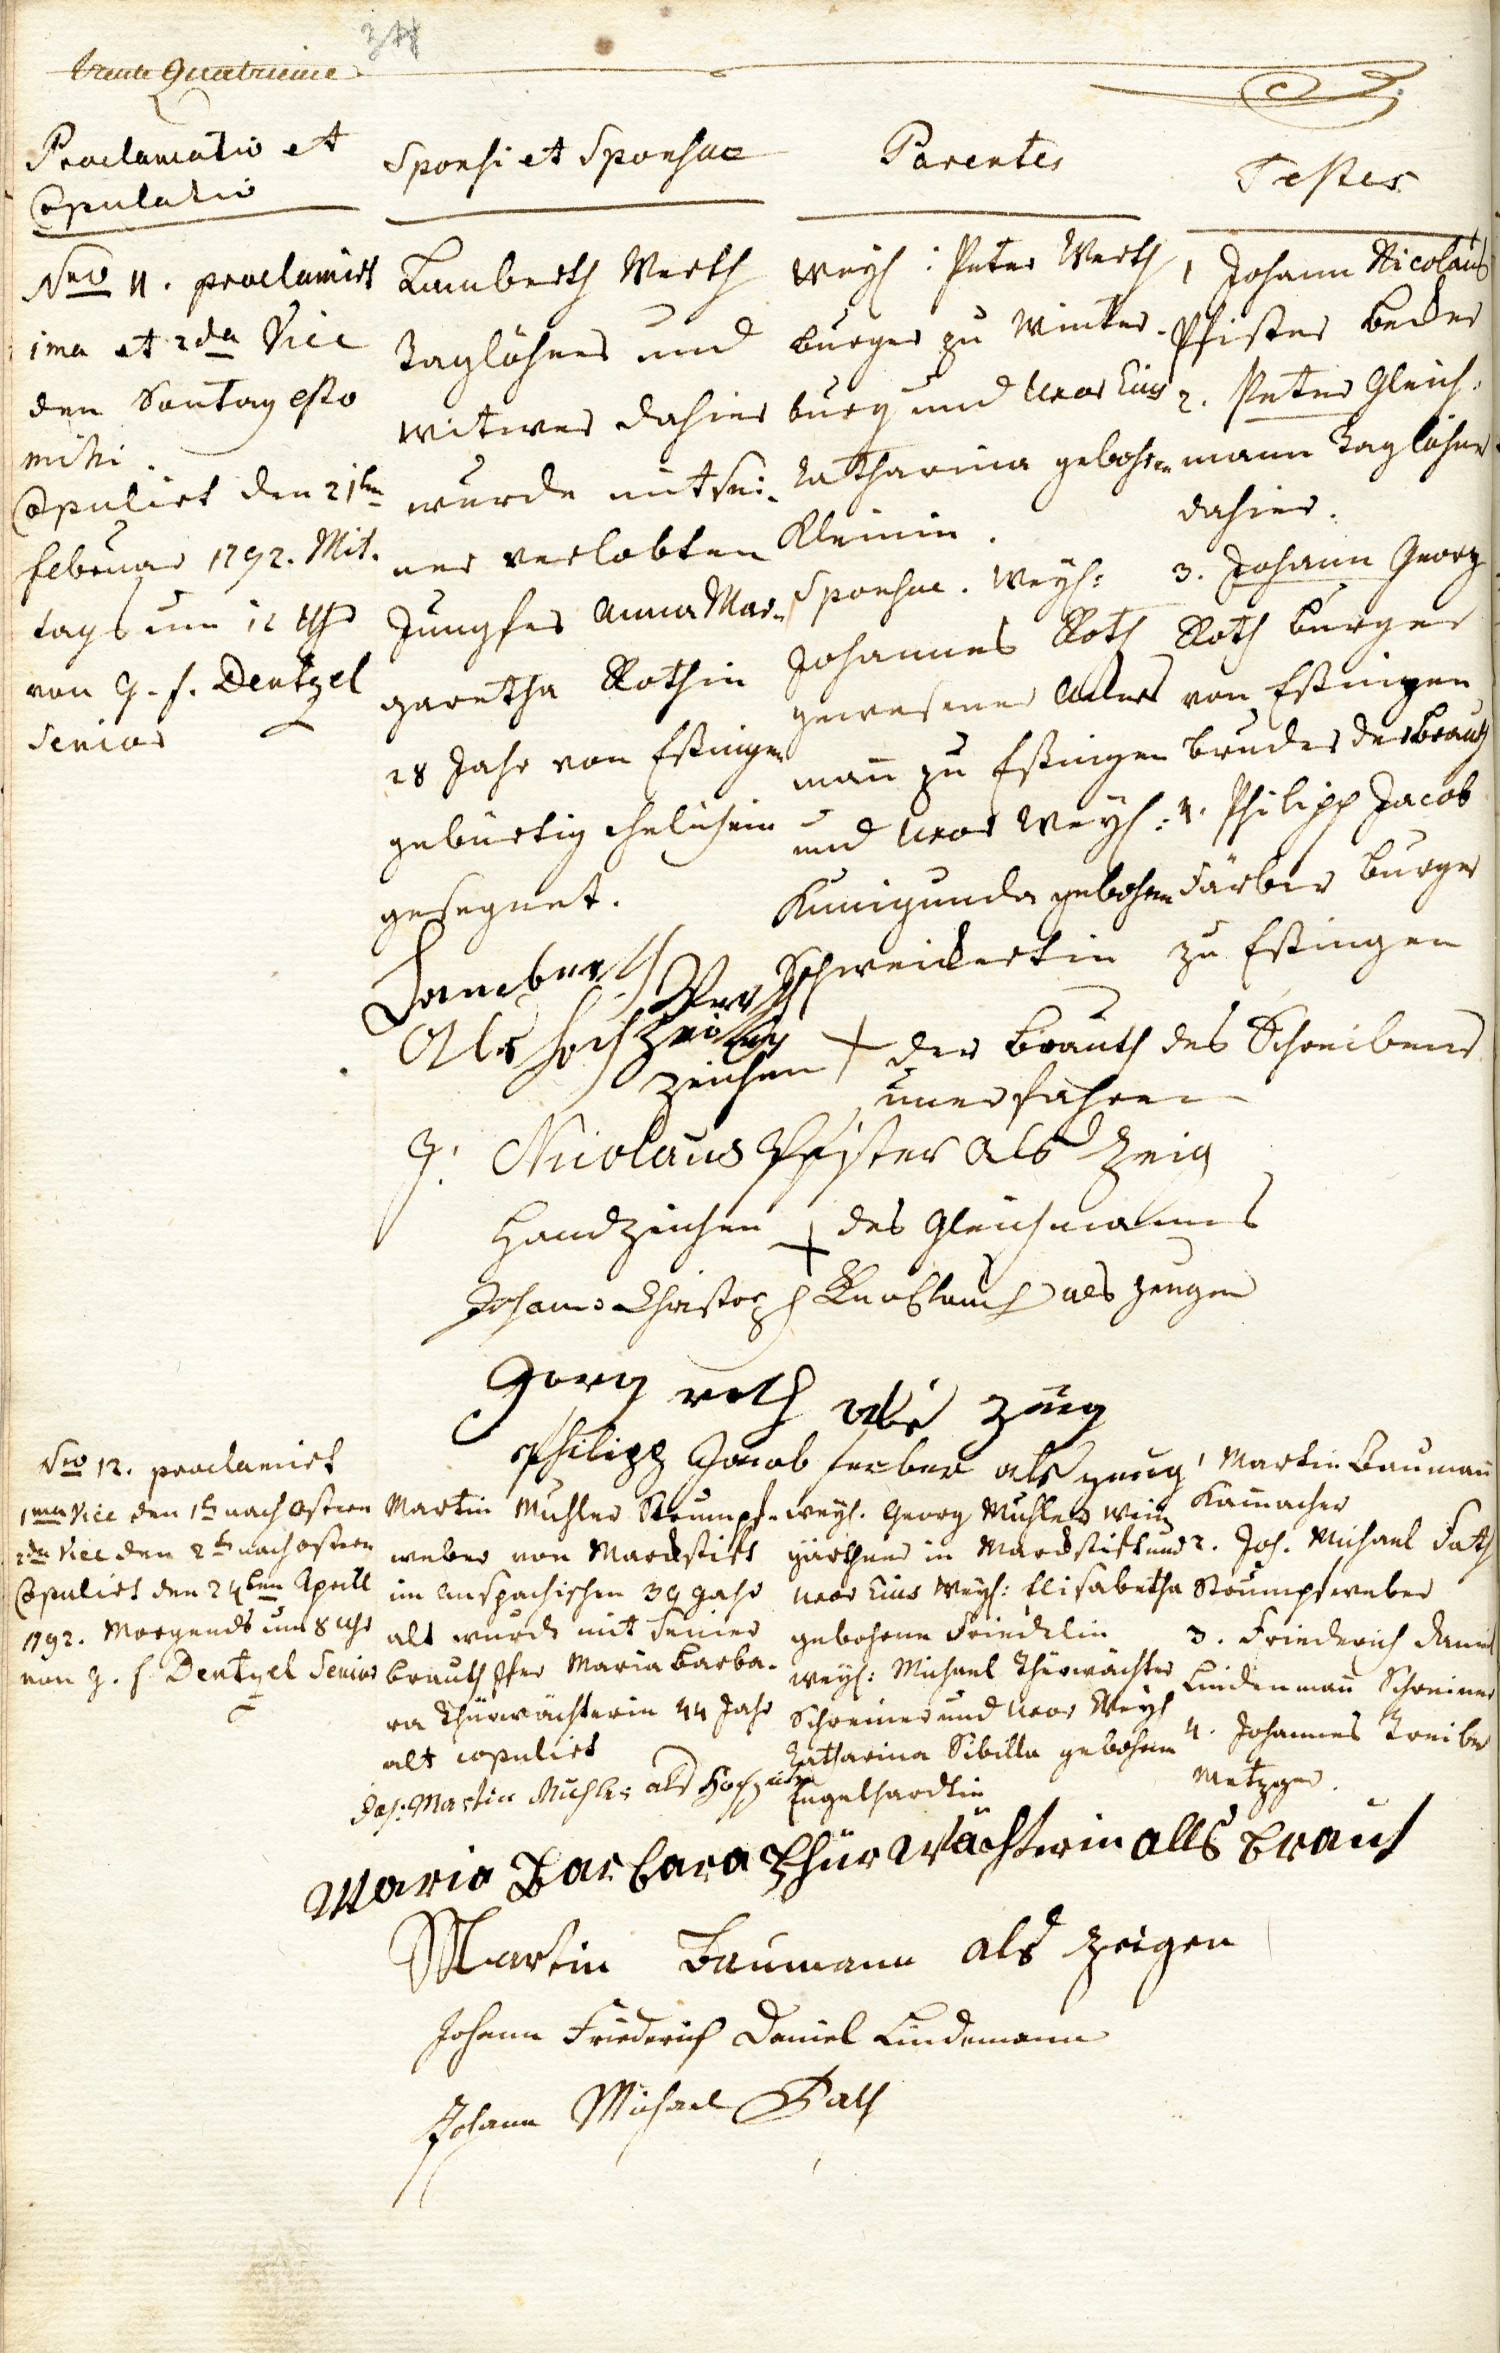 trente Quatrieme
34
Proclamatio et
Copulatio
Nro 11. proclamirt
1ma et 2da Vice
den Sontag esto
mihi.
Copulirt den 21ten
februar 1792. Mit-
tags um 12 Uhr
von G. f. Dentzel
Senior
Sponsi et Sponsae
Lamberth Werth
Taglöhner und
Witwer dahier
wurde mit sei-
ner verlobten
Jungfer Anna Mar-
garetha Rothin
28 Jahr von Eßingen
gebürtig ehelich ein
gesegnet.
Parentes
Weyl: Peter Werth
burger zu Winter-
burg und Uxor Eius
Katharina gebohrne
Kleinin.
Sponsae. Weyl:
Johannes Roth
gewesener Ackers
mañ zu Eßingen
und Uxor Weyl:
Kunigunda gebohrne
Schweickertin
Testes
1 Johann Nicolaus
Pfister becker
2. Peter Gleich-
mann Taglöhner
dahier.
3. Johann Georg
Roth burger
von Eßingen
bruder der brauth
4. Philipp Jacob
Färber burger
zu Eßingen
Lambrath Werth
Als hochzeiter
zeichen + der brauth des Schreibens
unerfahren
J. Nicolaus Pfister als Zeig
Handzeichen + des Gleichmanns
Johann Christoph Knoblauch als zeugen
Gorg roth als zeig
Philipp Jacob ferber als zeug
Nro 12. proclamirt
1ma Vice den 1ten nach ostern
2da Vice den 2ten nach ostern
Copulirt den 24ten Aprill
1792. Morgends um 8 Uhr
von G. f Dentzel Senior
Martin Muhler Strumpf-
weber von Marckstift
im Anspachischen 39 Jahr
alt wurde mit seiner
brauth Jfer Maria Barba-
ra Thürwächterin 44 Jahr
alt copulirt
weyl. Georg Muhler Wein
gärthner in Marckstift und
Uxor Eius Weyl: Elisabetha
gebohrne Friedelin
weyl: Michael Thürwächter
Schreiner und Uxor Weyl
Katharina Sibilla gebohrne
Engelhardtin
1 Martin Baumañ
Kamacher
2. Joh. Michael Fath
Strumpfweber
3. Friederich Daniel
Lindenmañ Schreiner
4. Johannes Treiber
Metzger.
Joh: Martin Muhler als Hochzeiter
Maria Barbara Thürwächterin alls braut
Martin Baumann als Zeigen
Johann Friederich Daniel Lindemann
Johann Michael Fath